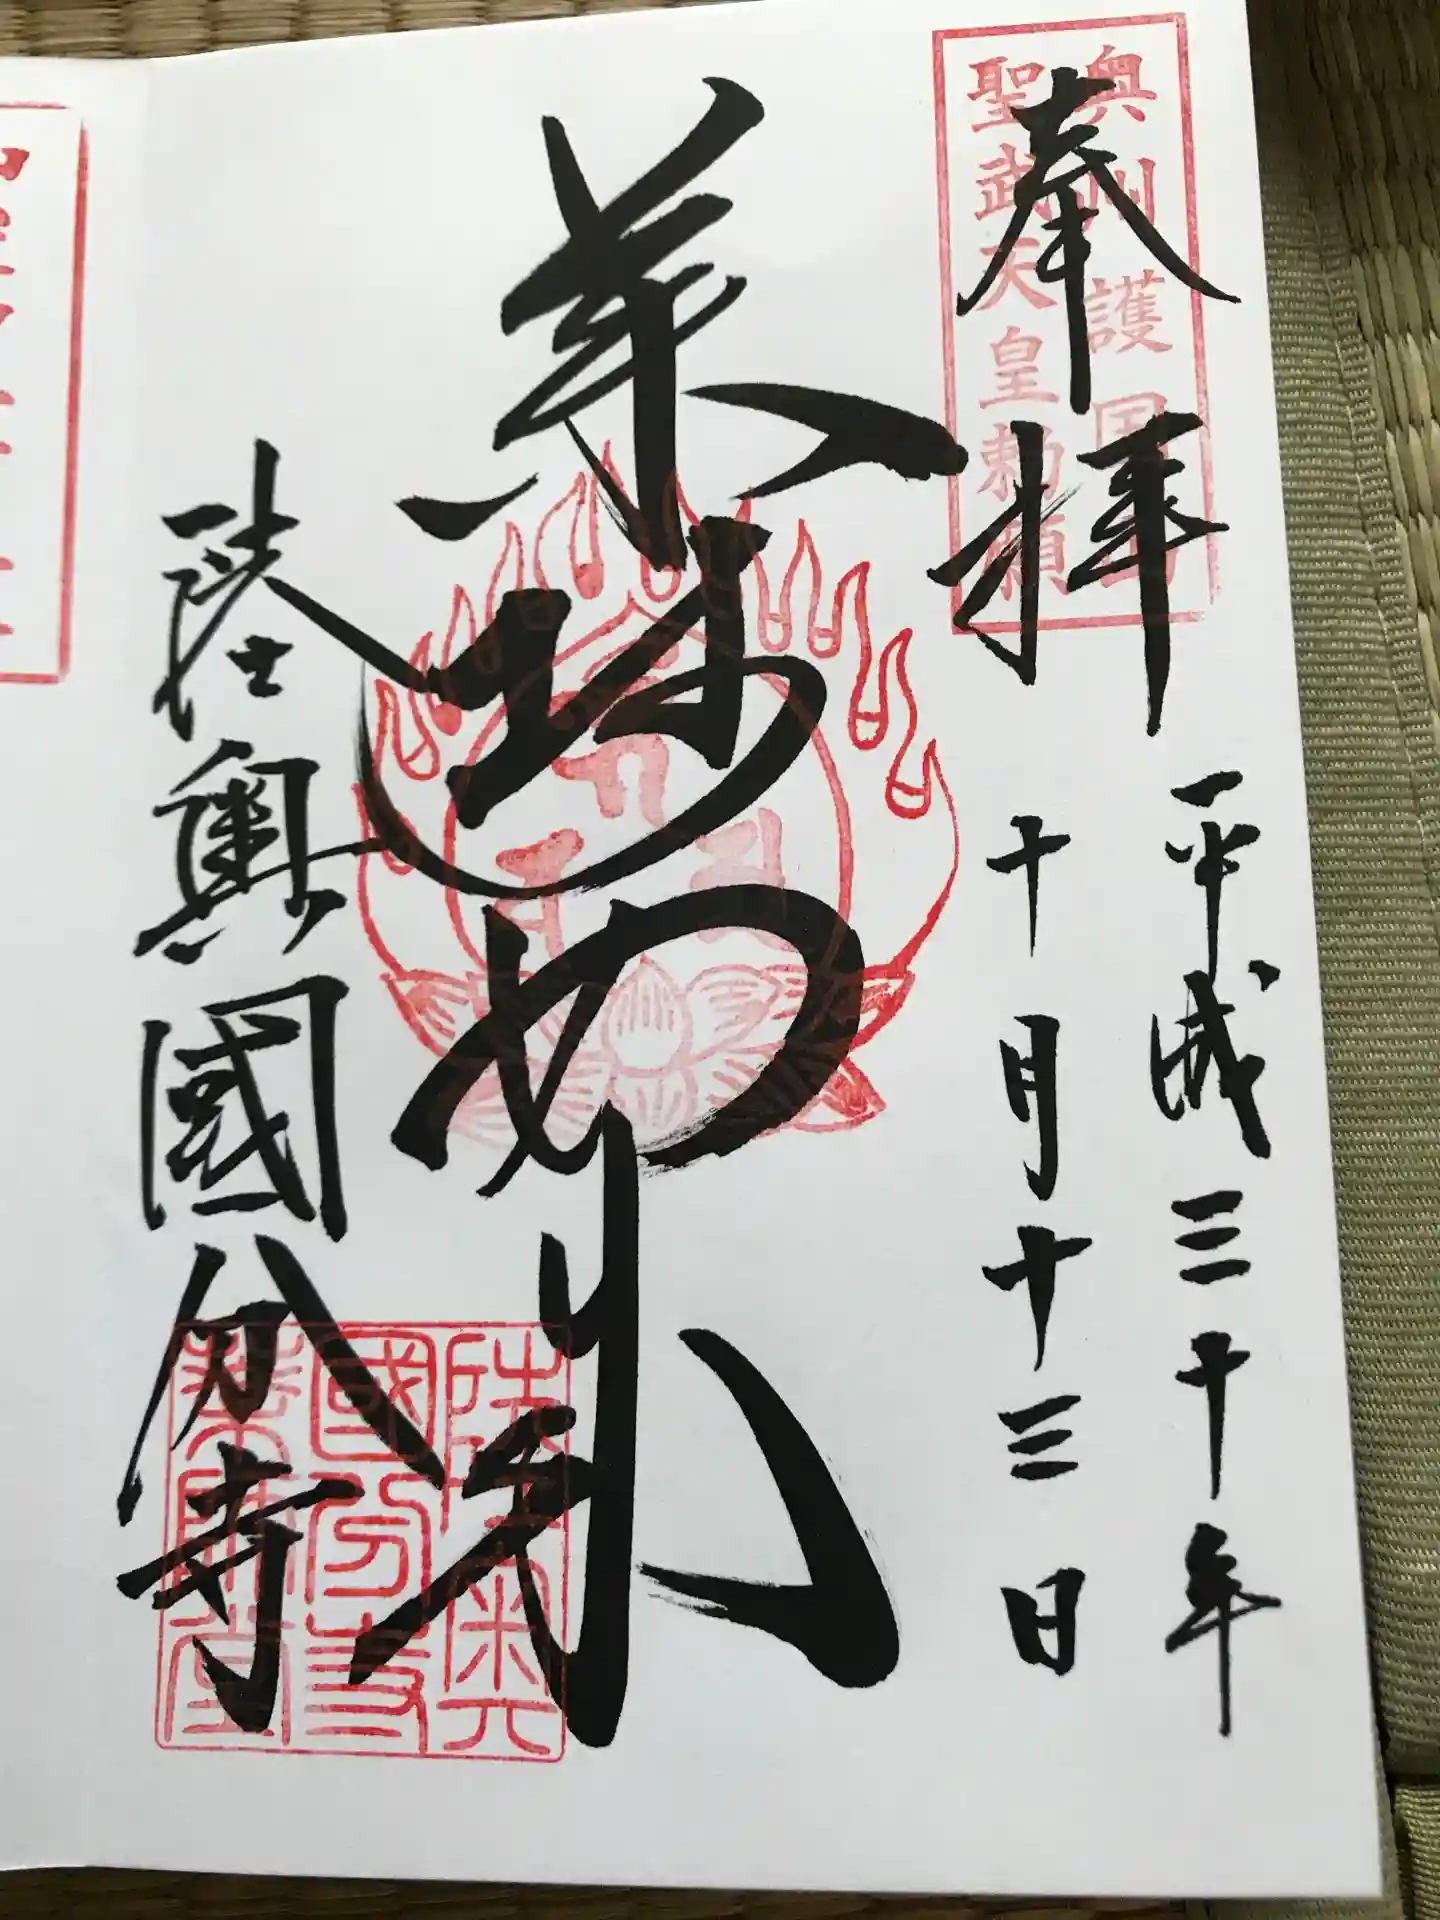 奉拝
奥州護国山
聖武天皇勅願
平成三十年
十月十三日
薬師如来
陸奥國分寺
陸奥
國分寺
薬師堂